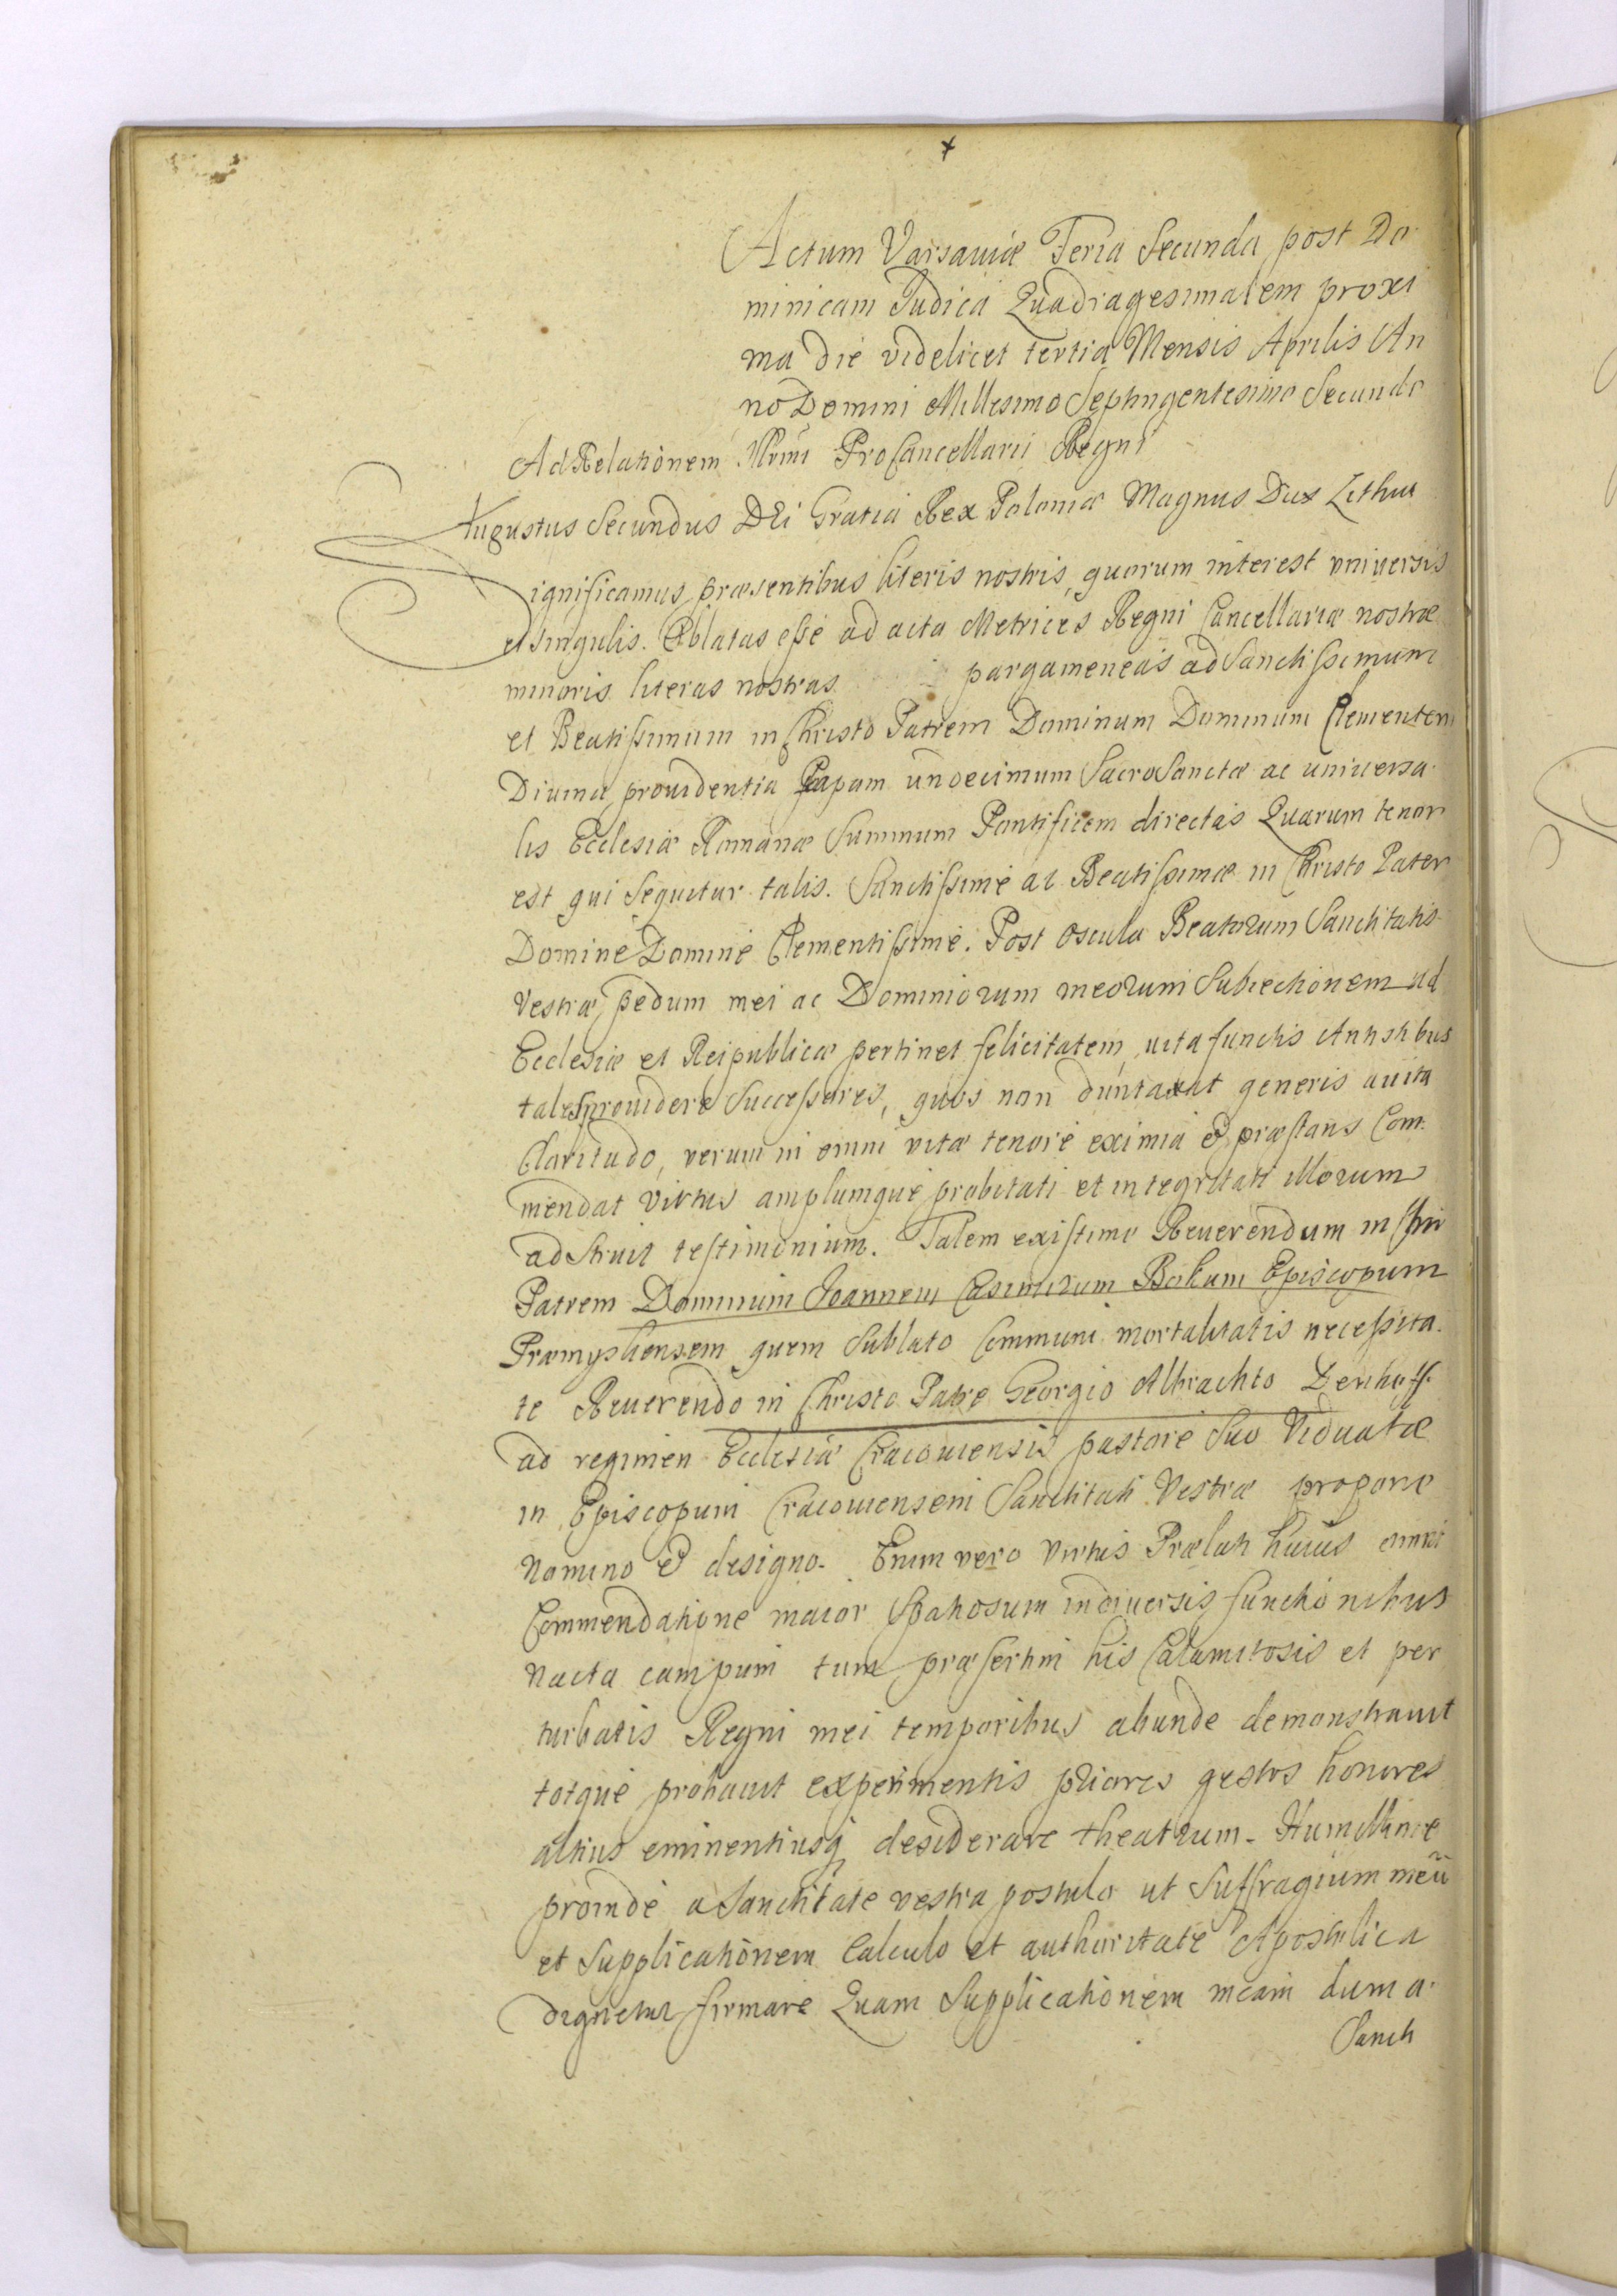 Actum Varsaviæ Feria Secunda post Do
minicam Judica Quadragesimalem proxi
ma die videlicet tertia Mensis Aprilis An
no Domini Millesimo Septingentesimo Secundo
Ad Relationem Illrmi ProCancellarii Regni
Augustus Secundus DEi Gratia Rex Poloniæ Magnus Dux Lithua
Significamus præsentibus literis nostris, quorum interest vniversis
et singulis. Oblatas esse ad acta Metrices Regni Cancellariæ nostræ
minoris literas nostras pargameneas ad Sanctissimum
et Beatissimum in Christo Patrem Dominum Dominum Clementem
Divina providentia Papam undecimum SacroSanctæ ac universa
lis Ecclesiæ Romanæ Summum Pontificem directas Quarum tenor
est qui sequitur talis. Sanctissime ac Beatissimæ in Christo Pater
Domine Domine Clementissime. Post Oscula Beatorum Sanctitatis
Vestræ pedum mei ac Dominiorum meorum Subiectionem ad
Ecclesiæ et Reipublicæ pertinet felicitatem, vita functis Antistibus
tales providere Successores, quos non duntaxat generis avita
Claritudo, verum in omni vitæ tenore eximia & præstans Com
mendat Virtus amplumque probitati et integritati Morum
adstruit testimonium. Talem existimo Reverendum in Chri
Patrem Dominum Joannem Casimirum Bokum Episcopum
Præmysliensem quem Sublato Communi mortalitatis necessita
te Reverendo in Christo Patre Georgio Albrachto Denhoff
ad regimen Ecclesiæ Cracoviensis pastore Suo Viduatæ
in Episcopum Cracoviensem Sanctitati Vestræ propono
Nomino & designo. Enim vero Virtus Prælati huius omni
Commendatione maior Spatiosum in diversis functionibus
Nacta campum tum præsertim his Calamitosis et per
turbatis Regni mei temporibus abunde demonstravit
totque probavit experimentis priores gestos honores
altius eminentiusq desiderare theatrum. Humillime
proinde a Sanctitate vestra postulo ut Suffragium meũ
et Supplicationem Calculo et authoritate Apostolica
dignetur firmare Quam Supplicationem meam dum a
Sancti